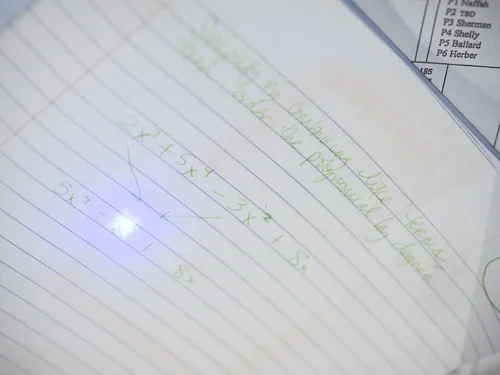 P1 Naffah
P2 TBD
P3 Sherman
P4 Shelly
P5 Ballard
P6 Herber
485
Simplify by combining like terms,
then order the polynomial by degree
2x² + 5x⁴ - 3x² + 8x
5x⁴ - x + 8x